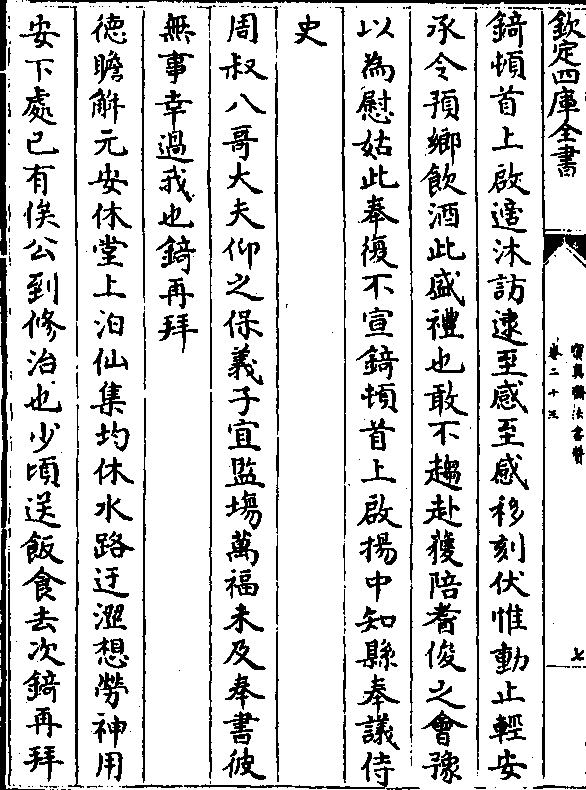 欽定四庫全書
寶真齋法書贊
卷二十三
七
錡頓首上啟適沐訪逮至感至感移刻伏惟動止輕安
承令預鄉飲酒此盛禮也敢不趨赴獲陪耆俊之會豫
以為慰姑此奉復不宣錡頓首上啟揚中知縣奉議侍
史
周叔八哥大夫仰之保義子宜監塲萬福未及奉書彼
無事幸過我也錡再拜
德瞻解元安休堂上洎仙集均休水路迂澀想勞神用
安下處已有俟公到修治也少頃送飯食去次錡再拜